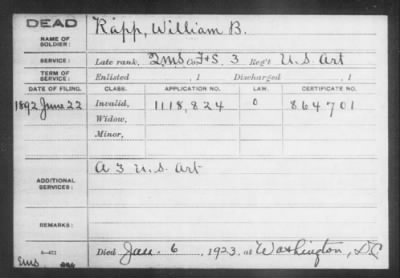 DEAD
NAME OF SOLDIER: Rapp, William B.
SERVICE: Late rank, Q.M.S. Co. F+S, 3 Reg't U.S. Art
TERM OF SERVICE: Enlisted , 1 Discharged , 1
DATE OF FILING. CLASS. APPLICATION NO. LAW. CERTIFICATE NO.
1892 June 22 Invalid, 1118,824 0 864701
Widow,
Minor,
ADDITIONAL SERVICES: A 3 U.S. Art
REMARKS:
Died Jan. 6, 1923, at Washington, DC
Ems.